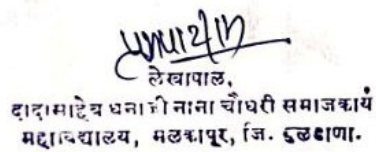 लेखापाल,
दादासाहेब धनाजी नाना चौधरी समाजकार्य
महाविद्यालय, मलकापूर, जि. बुलढाणा.